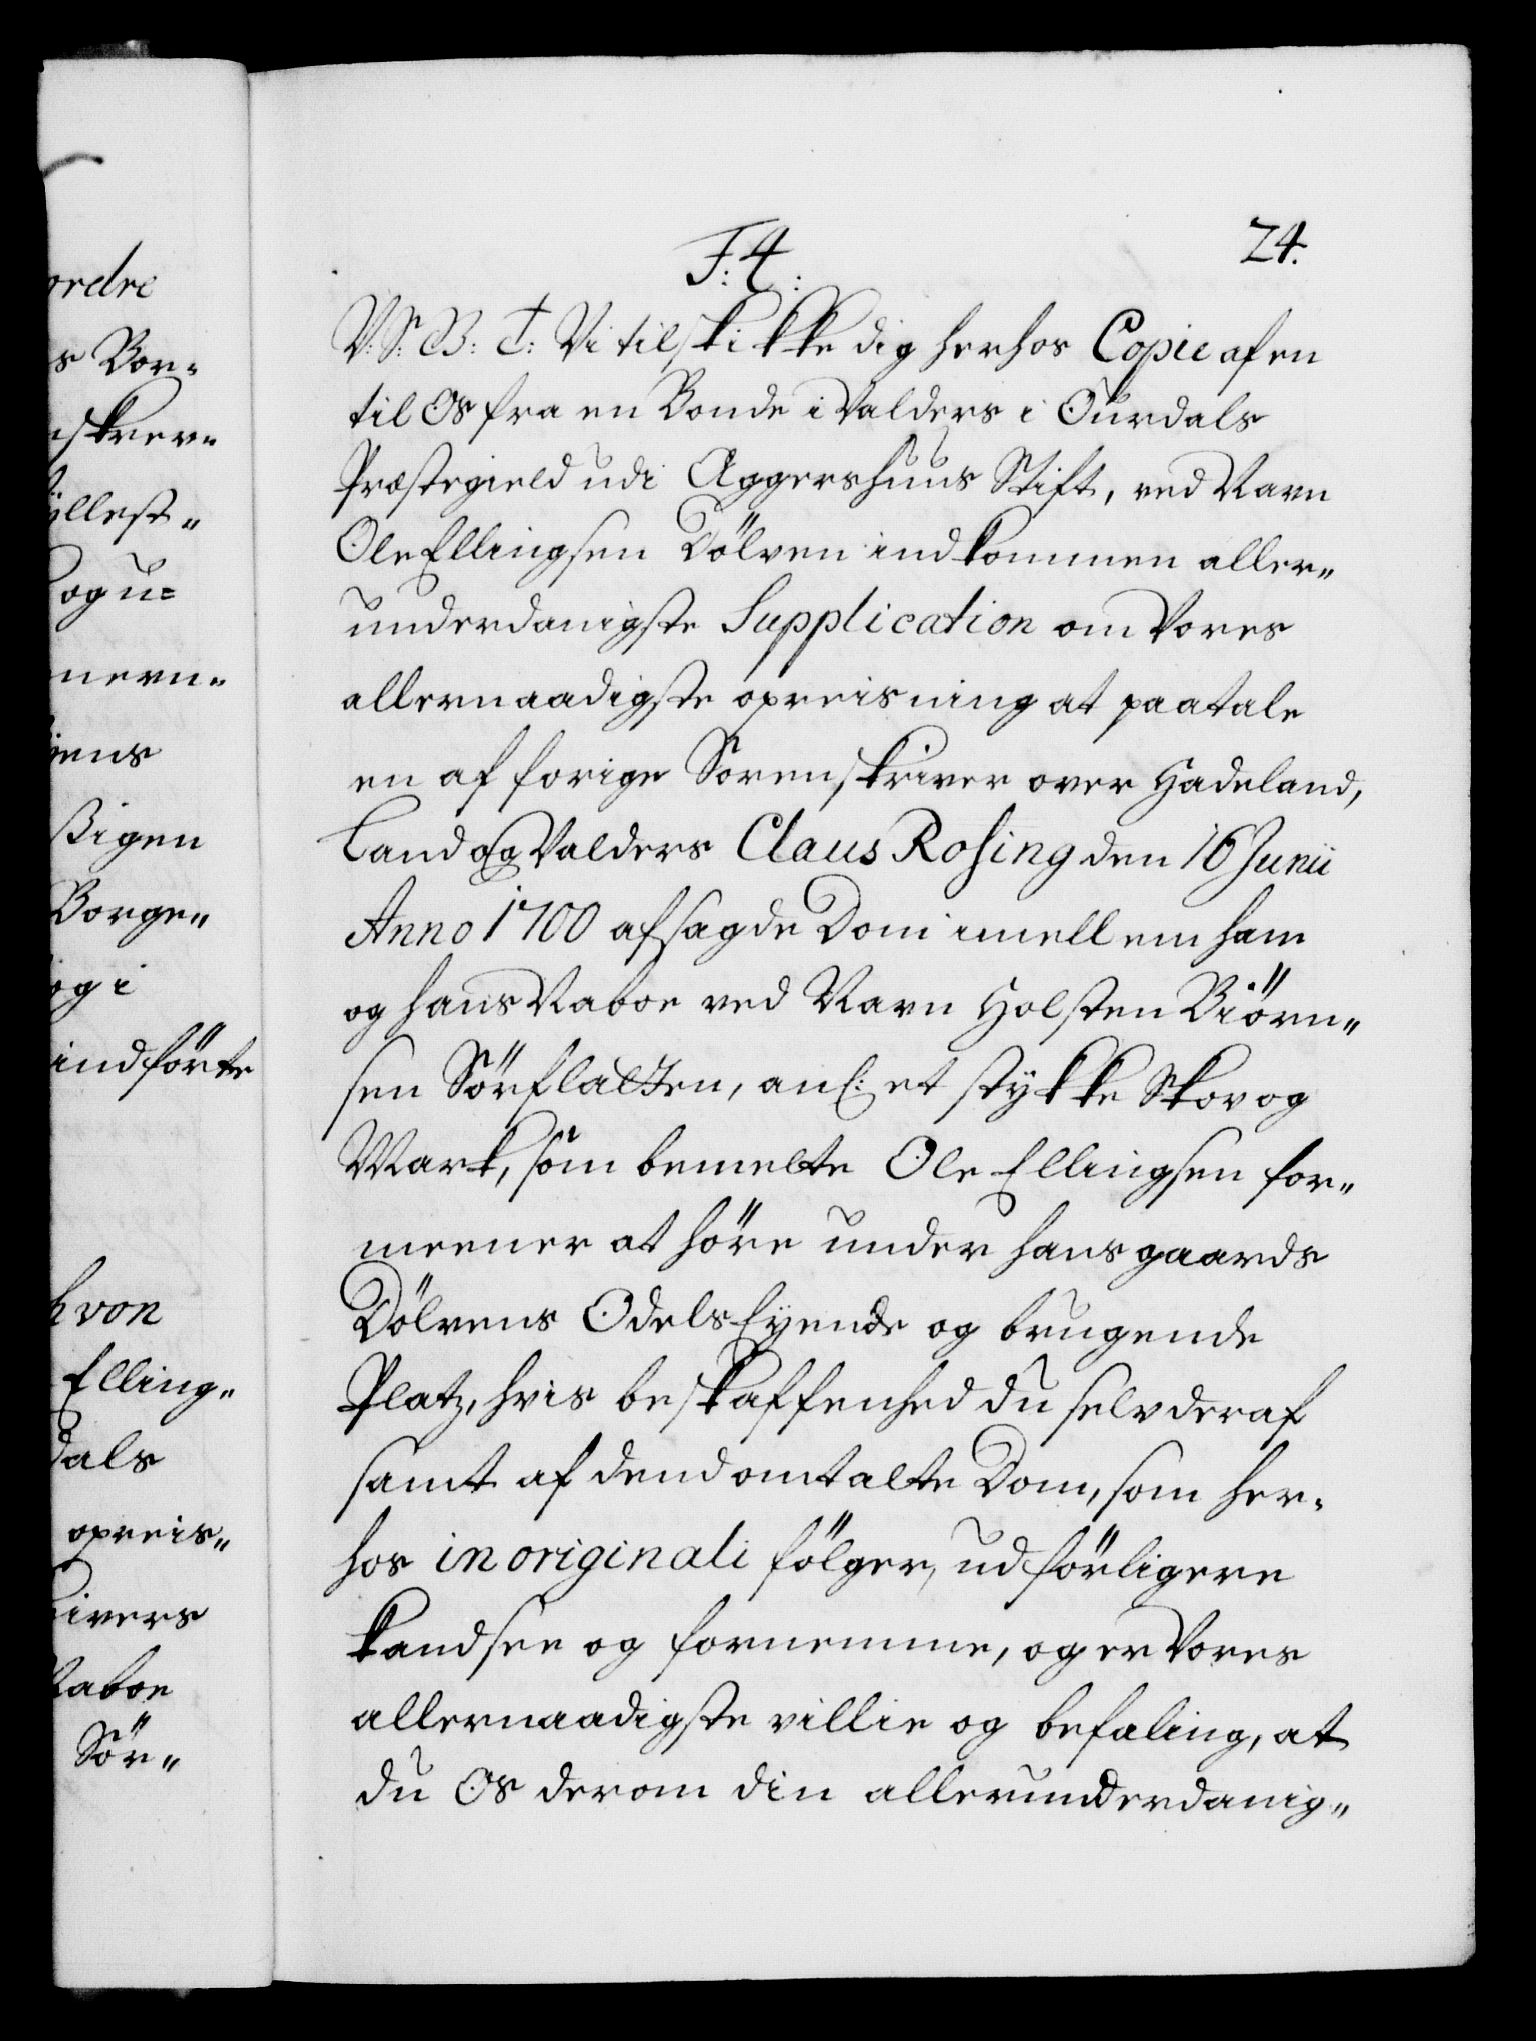 24.
F: 4:
V: S: B: T: Vi tilskikke dig herhos Copie af en
til Os fra en Bonde i Valders i Ourdals
Præstegield udi Aggershuus Stift, ved Navn
Ole Ellingsen Dölven indkommen aller„
underdanigste Supplication om Vores
allernaadigste opreisning at paatale
en af forige Sorenskriver over Hadeland,
Land og Valders Claus Rosing den 16 Junii
Anno 1700 afsagde Dom imellem ham
og hans Naboe ved Navn Holsten Biörn„
sen Sörflatten, anl: et stykke Skov og
Mark, som bemelte Ole Ellingsen for„
meener at höre under hans gaards
Dölvens Odels Eyende og brugende
Platz, hvis beskaffenhed du selv deraf
samt af dend omtalte Dom, som her„
hos in originali fölger, udförligere
kand see og fornemme, og er Vores
allernaadigste villie og befaling, at
du Os derom din allerunderdanig„
ordre
s Bor„
skrev„
llest„
og u=
nevn„
iens
ßigen
Borge„
og i
indförte
hvon
Elling„
dals
opreis„
ivers
Naboe
Sör„